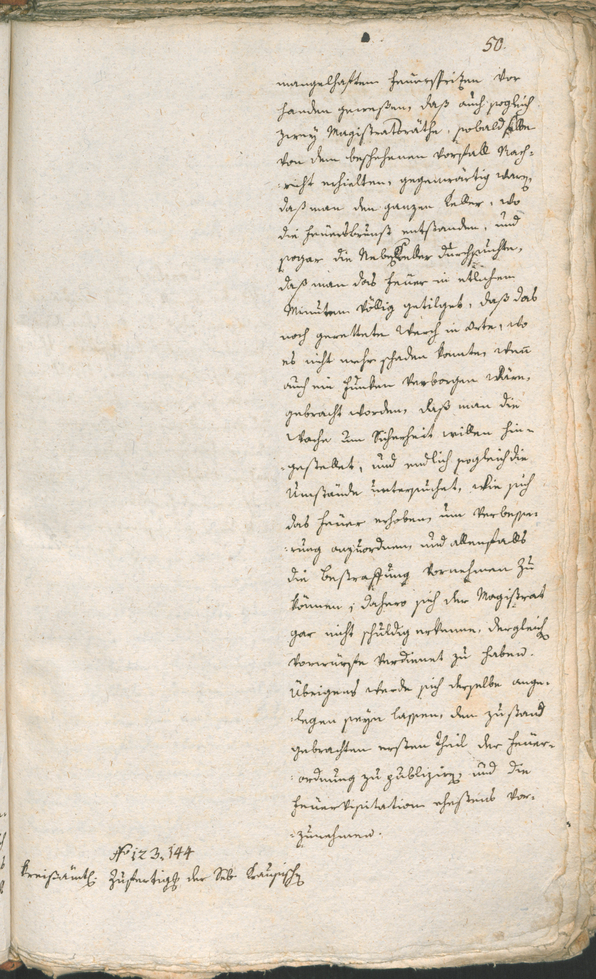 50.
mangelhaften Feuerspritzen vor
handen gewesen, daß auch sogleich
zwey Magistratsräthe, sobald selbe
von dem beschehenen Vorfall Nach¬
:richt erhielten, gegenwärtig waren,
daß man den ganzen Keller, wo
die Feuersbrunst entstanden, und
sogar die Nebenkeller durchsuchte,
daß man das Feuer in etlichen
Minuten völlig getilget, daß das
noch gerettete Werch in Orte, wo
es nicht mehr schaden konnte, wenn
auch ein Funken verborgen wäre,
gebracht worden, daß man die
Wache um Sicherheit willen hin¬
:gestellet, und endlich sogleich die
Umstände untersuchet, wie sich
das Feuer erhoben, um Verbesse¬
:rung anzuordnen, und allenfalls
die Bestraffung vornehmen zu
können; dahero sich der Magistrat
gar nicht schuldig erkenne, dergleichen
Vorwürfe verdienet zu haben.
Übrigens werde sich derselbe ange¬
:legen seyn lassen, den zu stand
gebrachten ersten Theil der Feuer¬
:ordnung zu publiziren, und die
Feuervisitation ehestens vor¬
:zunehmen.
No 123. 144
Kreisämtl: Zufertigg der Seb